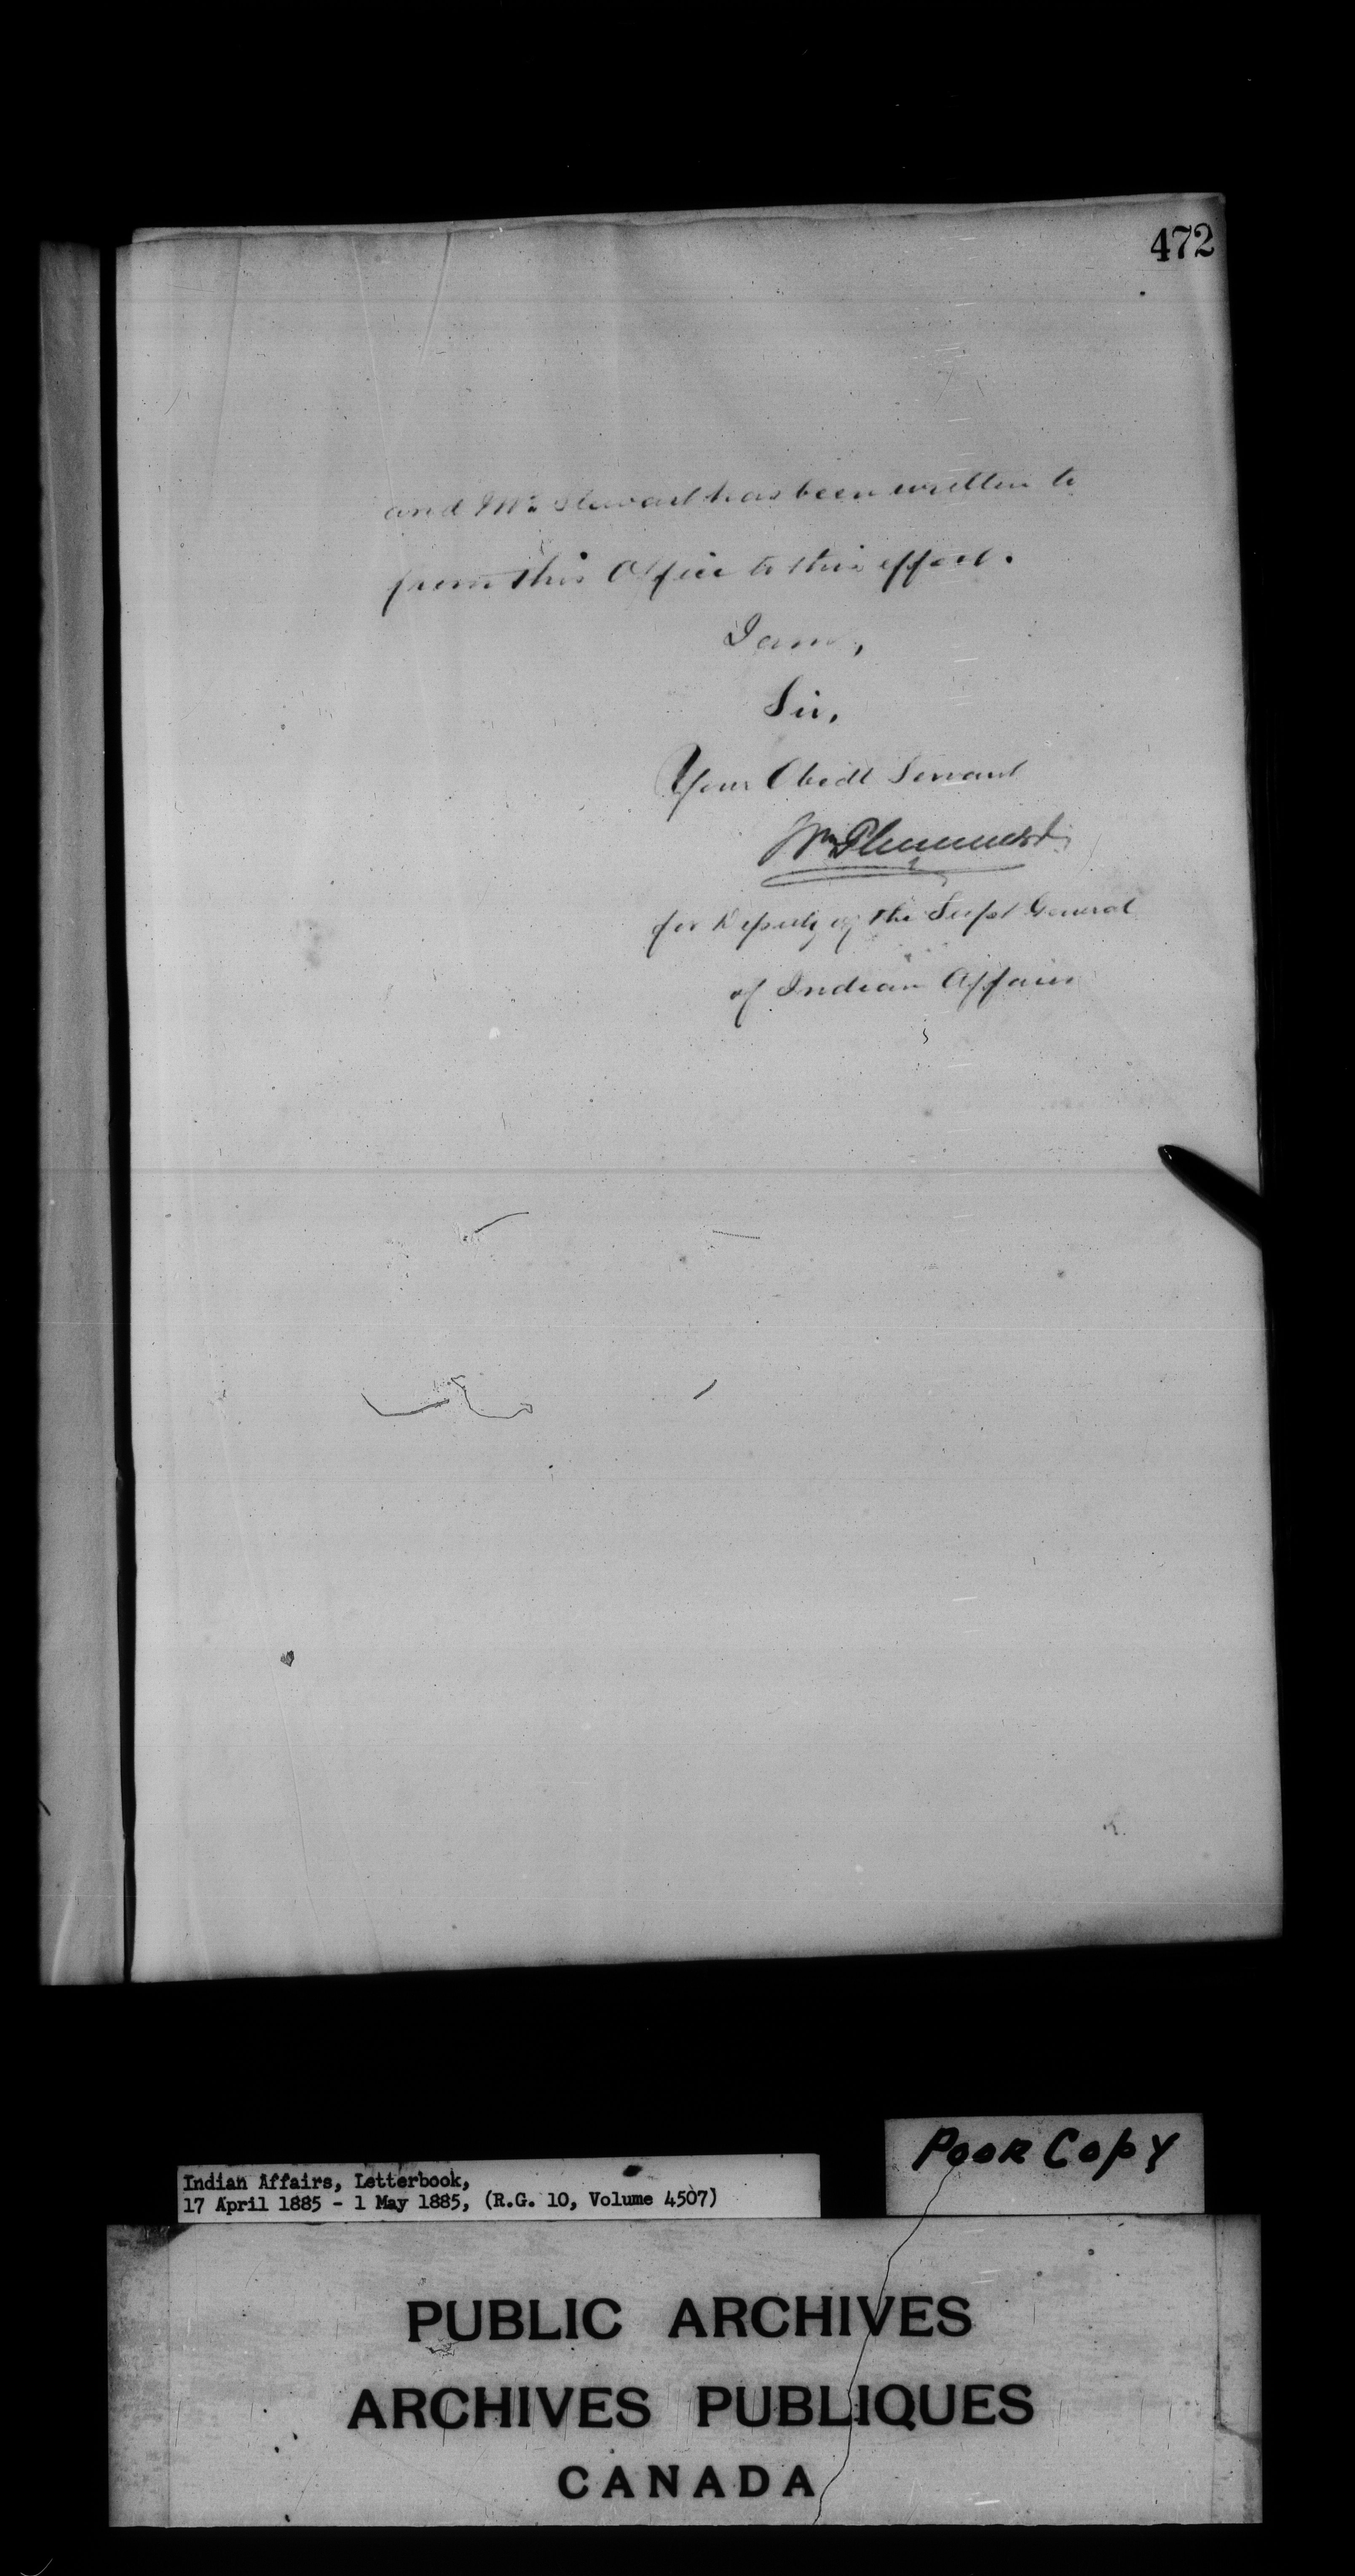 472
and Mr. Stewart has been written to
from this Office to this effect.
I am,
Sir,
Your Obedt Servant
Wm Plummer
for Deputy of the Supt General
of Indian Affairs
Poor Copy
Indian Affairs, Letterbook,
17 April 1885 - 1 May 1885, (R.G. 10, Volume 4507)
PUBLIC ARCHIVES
ARCHIVES PUBLIQUES
CANADA